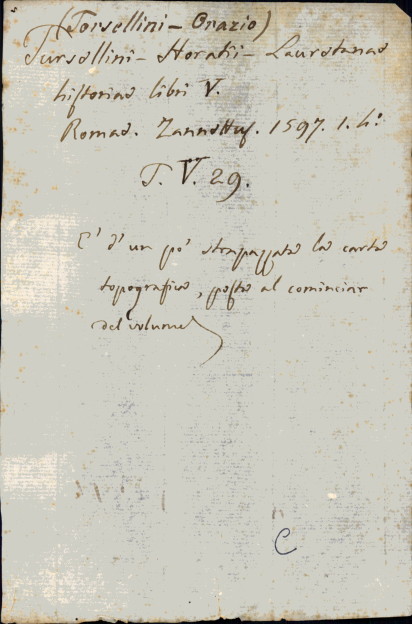 (Torsellini - Orazio)
Tursellini - Horatii - Lauretanae
historiae libri V.
Romae. Zannettus. 1597. 1. 4.°
T. V. 29.
E' d'un pò strapazzata la carta
topografica, posta al cominciar
del volume
C